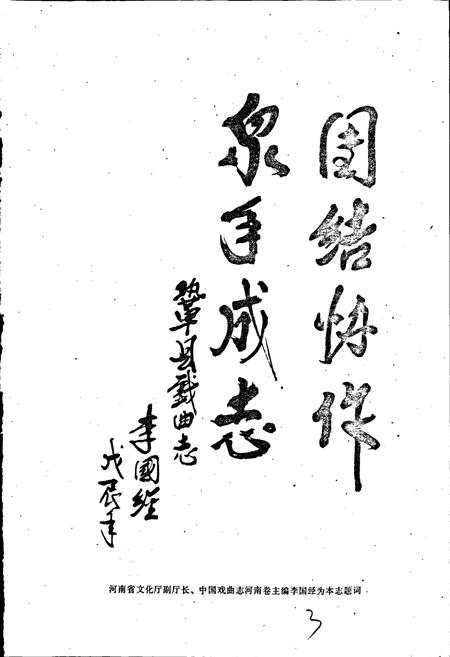 团结协作
众手成志
巩县戏曲志
李國經
戊辰年
河南省文化厅副厅长、中国戏曲志河南卷主编李国经为本志题词
3